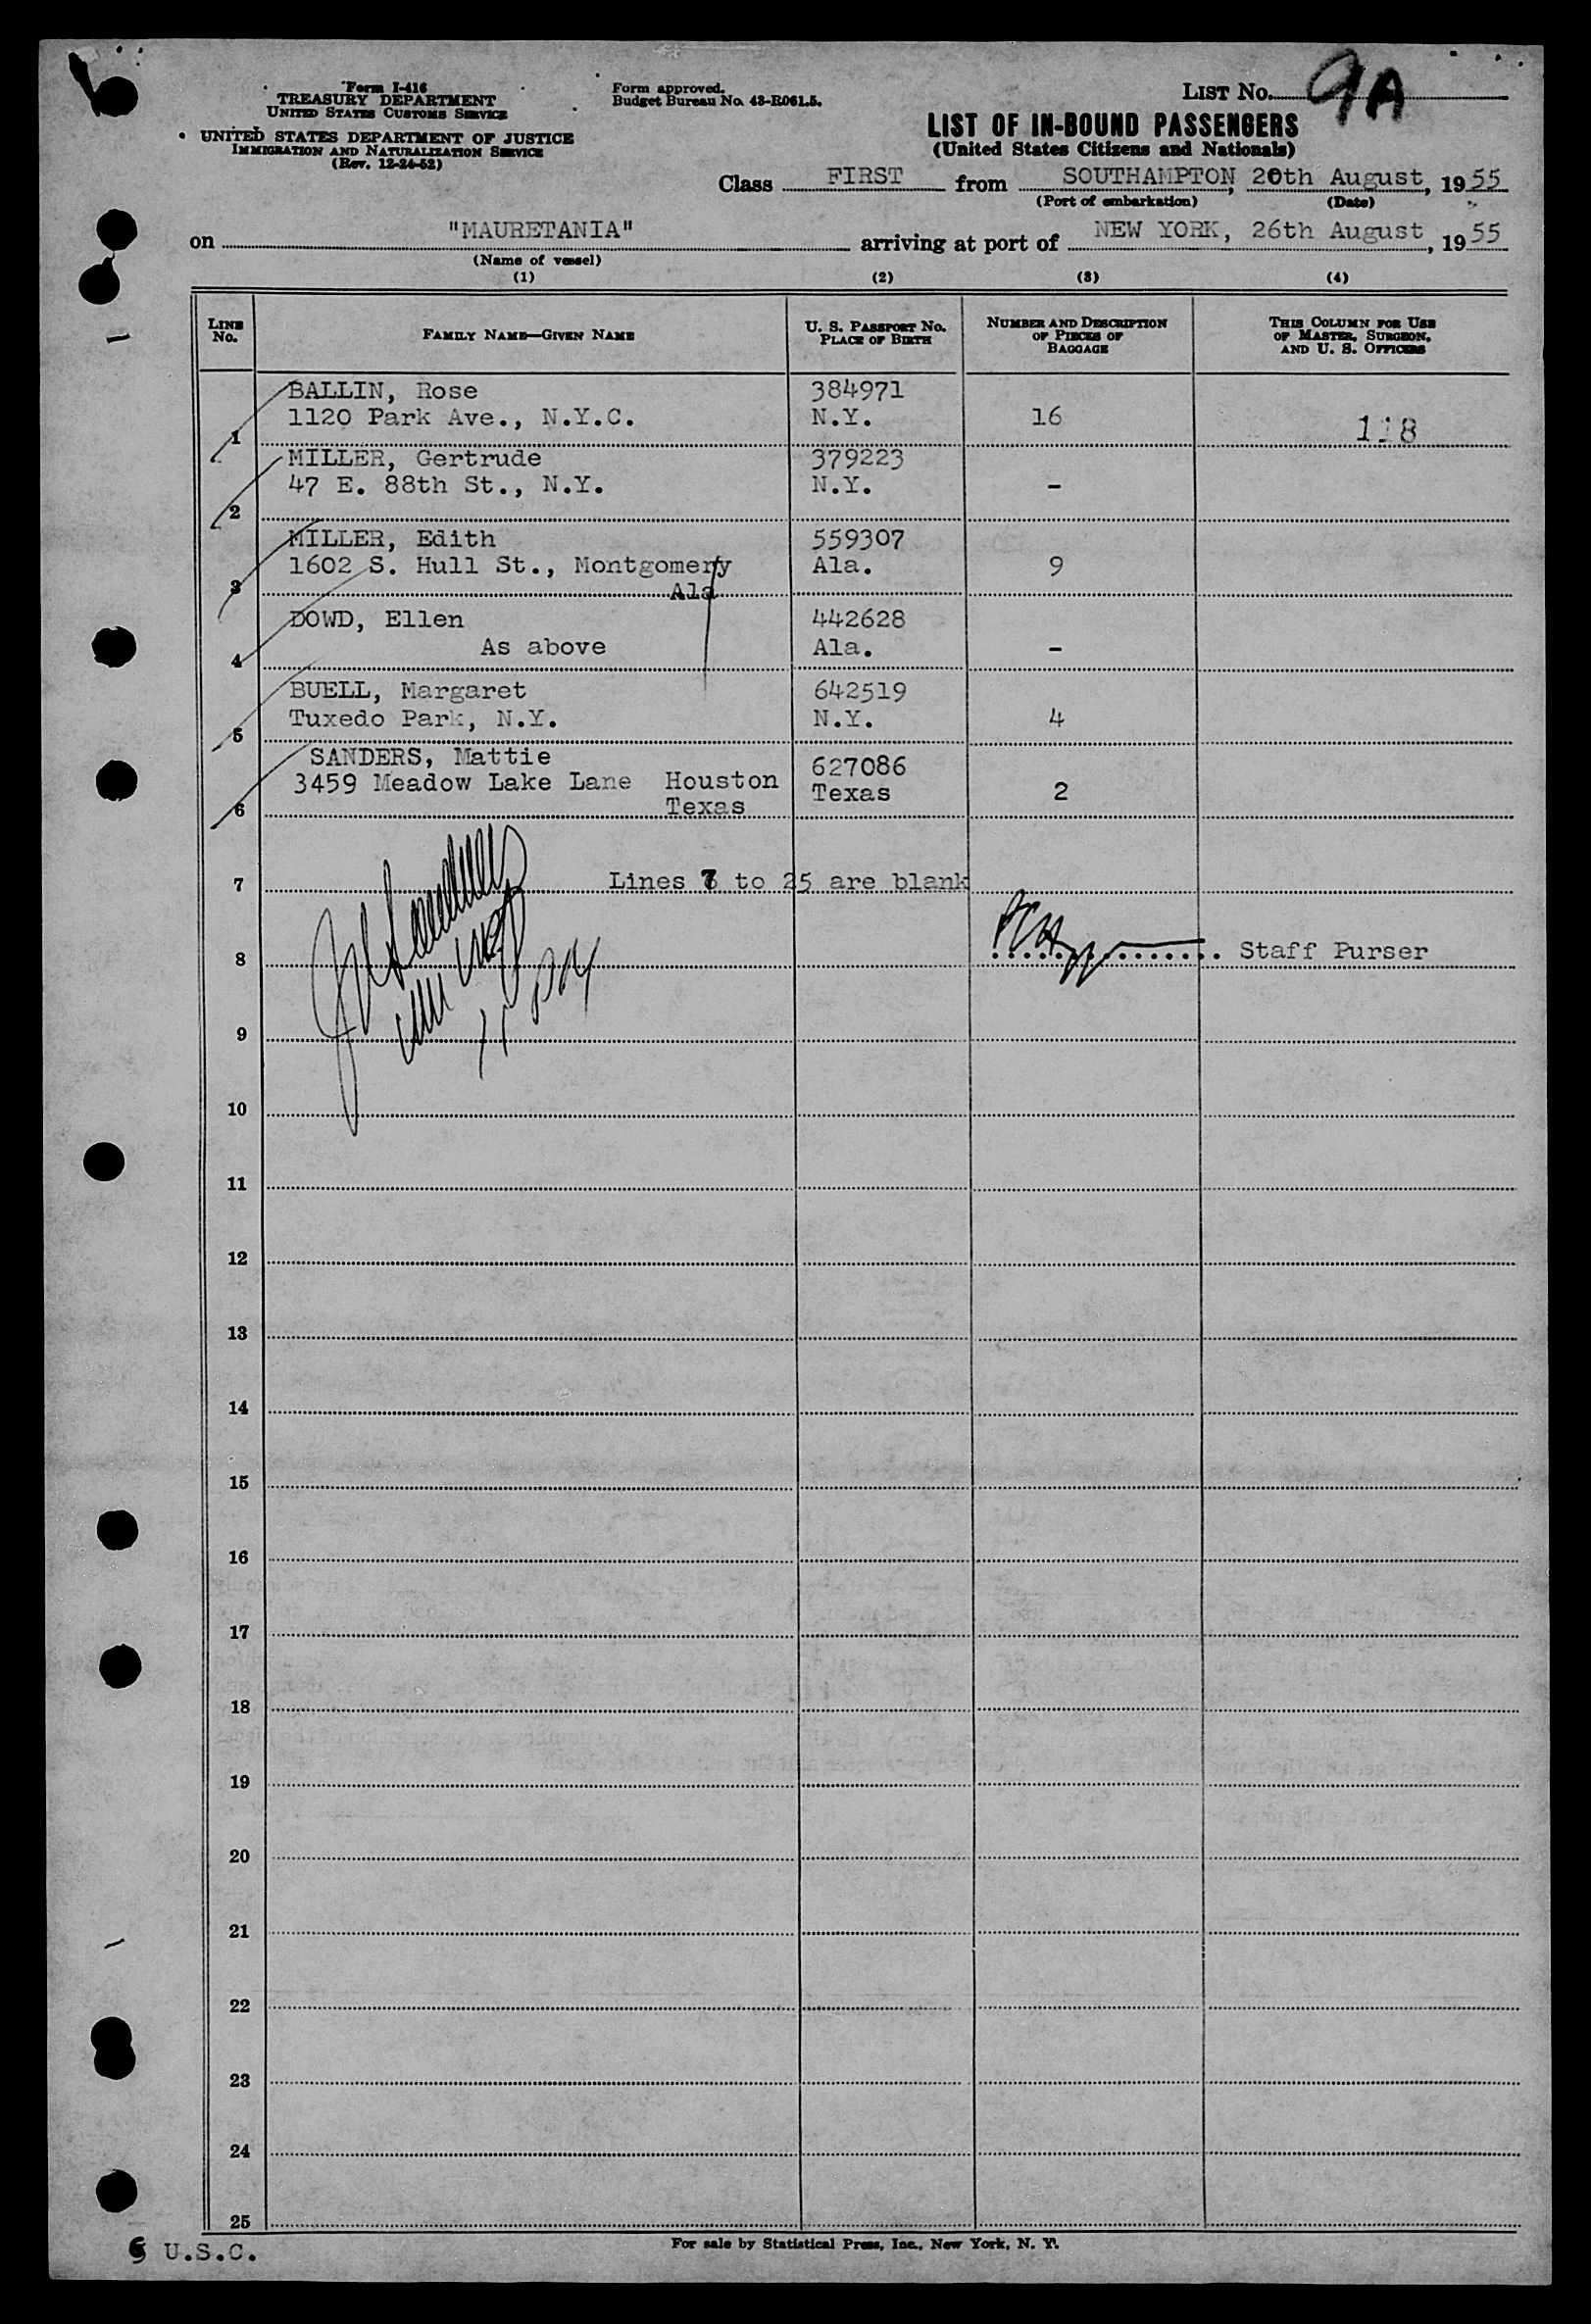 Form I-416
TREASURY DEPARTMENT
UNITED STATES CUSTOMS SERVICE
UNITED STATES DEPARTMENT OF JUSTICE
IMMIGRATION AND NATURALIZATION SERVICE
(Rev. 12-24-52)
Form approved.
Budget Bureau No. 43-R061.5.
LIST No. 9A
LIST OF IN-BOUND PASSENGERS
(United States Citizens and Nationals)
Class FIRST from SOUTHAMPTON, 20th August, 1955
(Port of embarkation) (Date)
on "MAURETANIA" arriving at port of NEW YORK, 26th August, 1955
(Name of vessel)
(1) (2) (3) (4)
LINE No. FAMILY NAME—GIVEN NAME U. S. PASSPORT No. PLACE OF BIRTH NUMBER AND DESCRIPTION OF PIECES OF BAGGAGE THIS COLUMN FOR USE OF MASTER, SURGEON, AND U. S. OFFICERS
BALLIN, Rose 384971
1120 Park Ave., N.Y.C. N.Y. 16 118
1
MILLER, Gertrude 379223
47 E. 88th St., N.Y. N.Y. -
2
MILLER, Edith 559307
1602 S. Hull St., Montgomery Ala. 9
3 Ala
DOWD, Ellen 442628
As above Ala. -
4
BUELL, Margaret 642519
Tuxedo Park, N.Y. N.Y. 4
5
SANDERS, Mattie 627086
3459 Meadow Lake Lane Houston Texas 2
6 Texas
7 Lines 7 to 25 are blank
8 Staff Purser
9
10
11
12
13
14
15
16
17
18
19
20
21
22
23
24
25
U.S.C.
For sale by Statistical Press, Inc., New York, N. Y.